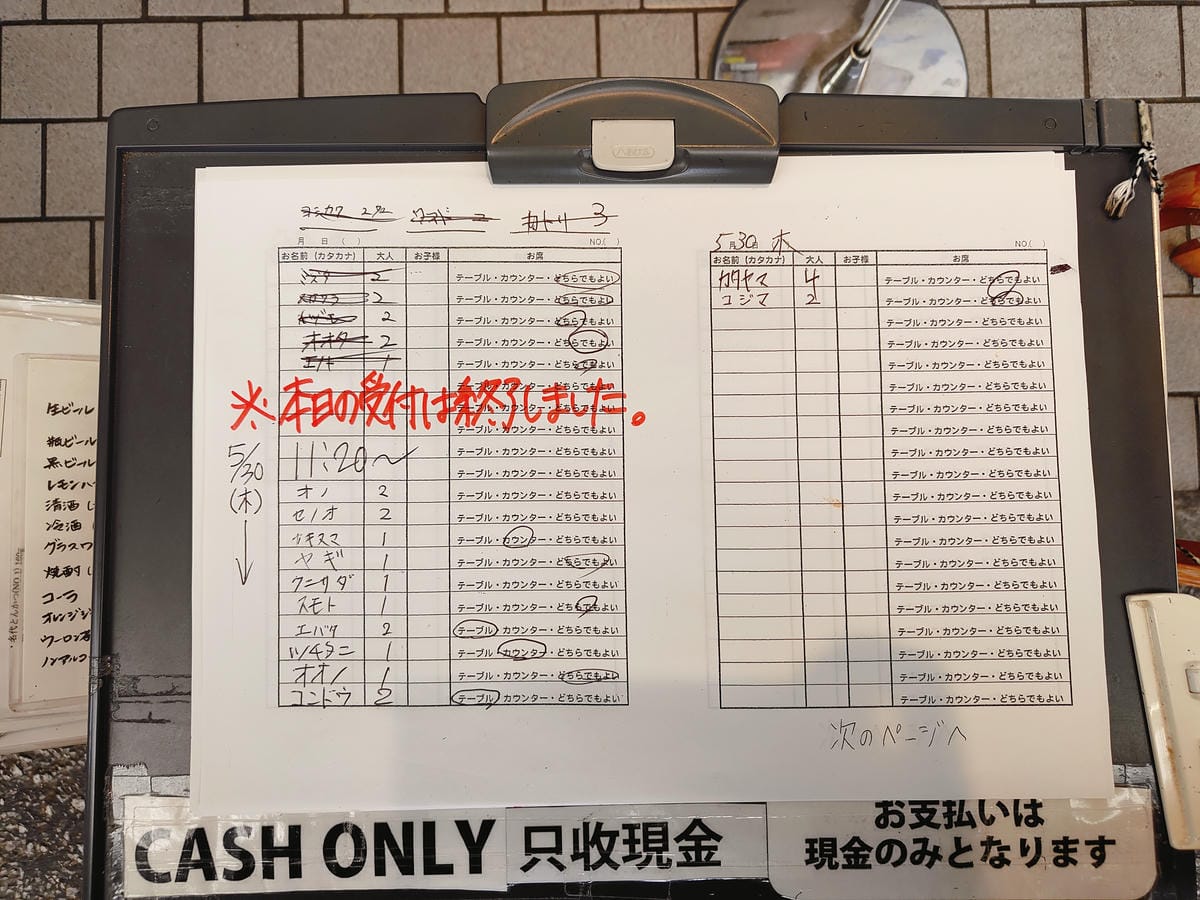 カトリ 3
月 日 ( ) NO.( )
お名前 (カタカナ) 大人 お子様 お席
2 テーブル・カウンター・どちらでもよい
2 テーブル・カウンター・どちらでもよい
2 テーブル・カウンター・どちらでもよい
オオタ 2 テーブル・カウンター・どちらでもよい
1 テーブル・カウンター・どちらでもよい
テーブル・カウンター・どちらでもよい
※本日の受付は終了しました。
テーブル・カウンター・どちらでもよい
テーブル・カウンター・どちらでもよい
5/30 (木)
11:20〜 テーブル・カウンター・どちらでもよい
テーブル・カウンター・どちらでもよい
オノ 2 テーブル・カウンター・どちらでもよい
セノオ 2 テーブル・カウンター・どちらでもよい
1 テーブル・カウンター・どちらでもよい
ヤギ 1 テーブル・カウンター・どちらでもよい
クニサダ 1 テーブル・カウンター・どちらでもよい
スモト 1 テーブル・カウンター・どちらでもよい
エバタ 2 テーブル・カウンター・どちらでもよい
ツチタニ 1 テーブル・カウンター・どちらでもよい
オオノ 1 テーブル・カウンター・どちらでもよい
コンドウ 2 テーブル・カウンター・どちらでもよい
5月30日 木 NO.( )
お名前 (カタカナ) 大人 お子様 お席
カタヤマ 4 テーブル・カウンター・どちらでもよい
コジマ 2 テーブル・カウンター・どちらでもよい
テーブル・カウンター・どちらでもよい
テーブル・カウンター・どちらでもよい
テーブル・カウンター・どちらでもよい
テーブル・カウンター・どちらでもよい
テーブル・カウンター・どちらでもよい
テーブル・カウンター・どちらでもよい
テーブル・カウンター・どちらでもよい
テーブル・カウンター・どちらでもよい
テーブル・カウンター・どちらでもよい
テーブル・カウンター・どちらでもよい
テーブル・カウンター・どちらでもよい
テーブル・カウンター・どちらでもよい
テーブル・カウンター・どちらでもよい
テーブル・カウンター・どちらでもよい
テーブル・カウンター・どちらでもよい
テーブル・カウンター・どちらでもよい
テーブル・カウンター・どちらでもよい
テーブル・カウンター・どちらでもよい
次のページへ
生ビール
瓶ビール
黒ビール
レモンハ
清酒 (
冷酒 (
グラスワ
焼酎 (
コーラ
オレンジジ
ウーロン茶
ノンアルコー
CASH ONLY
只收現金
お支払いは
現金のみとなります